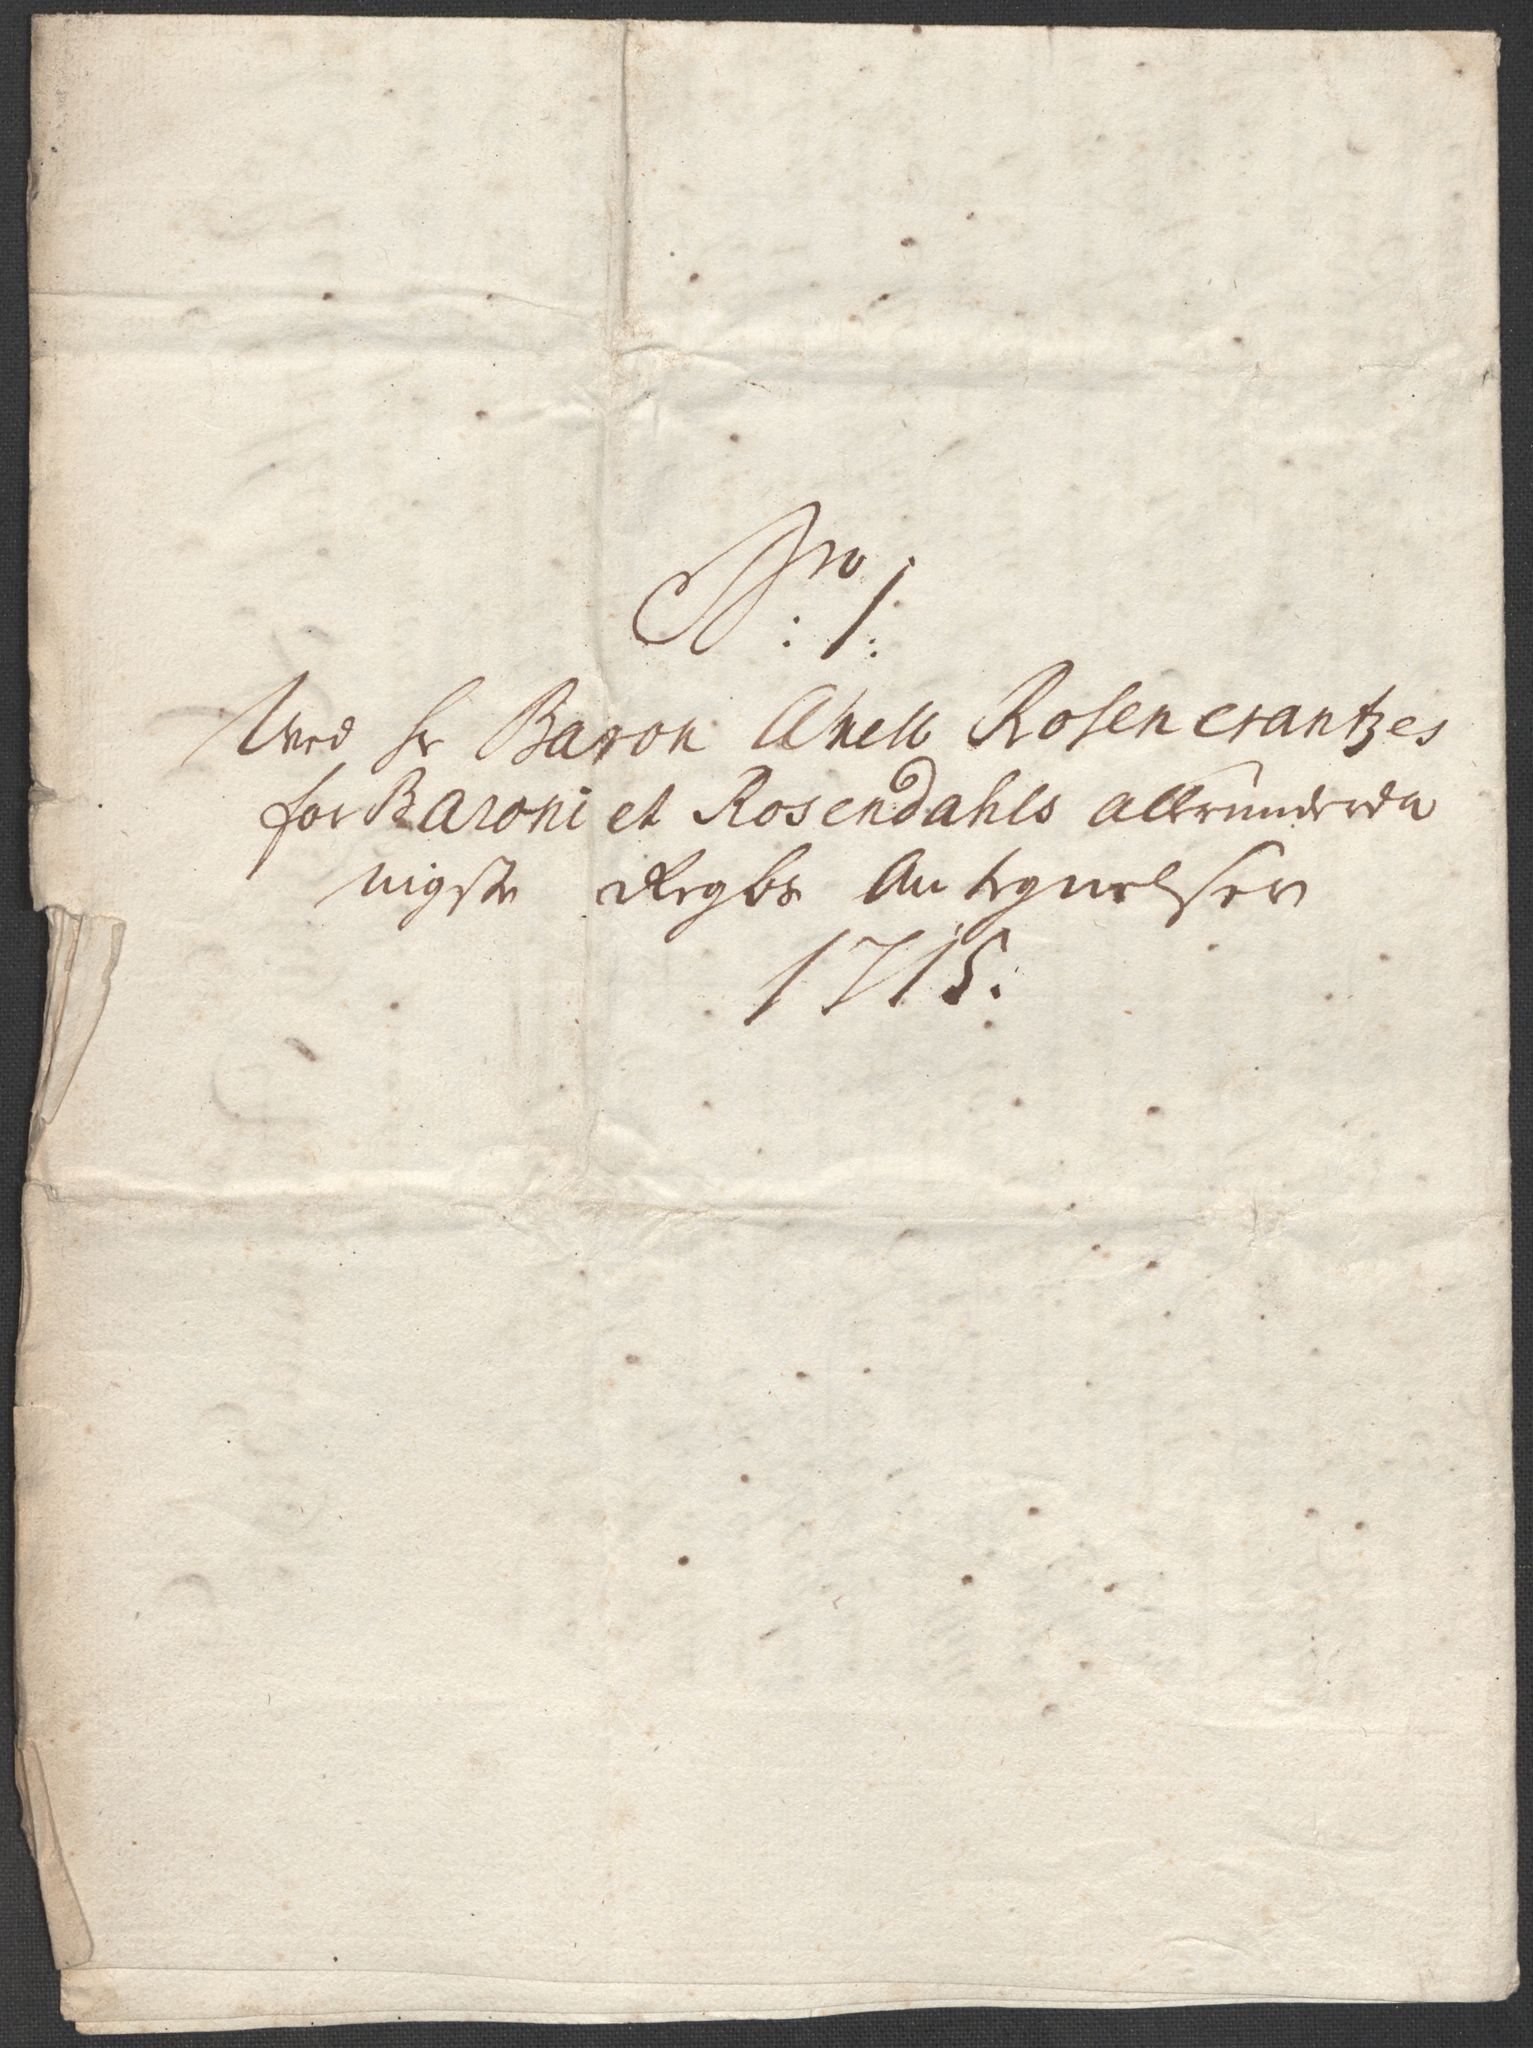 Nro: 1:
Ved Hr Baron Axell Rosencrantzes
for Baroniet Rosendahls allerunderda
nigste Regbs Antegnelser
1715.